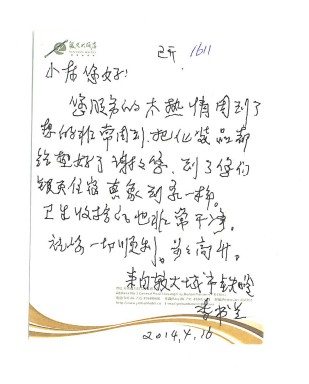 已开 1611
小友您好!
您服务的太热情周到了
想的非常周到,把化妆品都
给垫好了谢谢您,到了你们
顺天住宿真象到家一样。
卫生收拾的也非常干净。
祝您一切顺利。步步高升。
来自较大城市铁岭
李书兰
2014,4,16